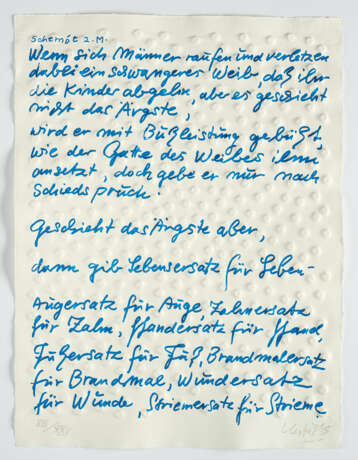 Schemot 2.M.
Wenn sich Männer raufen und verletzen
dabei ein schwangeres Weib, daß ihr
die Kinder abgehn, aber es geschieht
nicht das Ärgste,
wird er mit Bußleistung gebüßt,
wie der Gatte des Weibes ihm
ansetzt, doch gebe er nur nach
Schiedspruch!
Geschieht das Ärgste aber,
dann gib Lebensersatz für Leben –
Augersatz für Auge, Zahnersatz
für Zahn, Handersatz für Hand,
Fußersatz für Fuß, Brandmalersatz
für Brandmal, Wundersatz
für Wunde, Striemersatz für Strieme